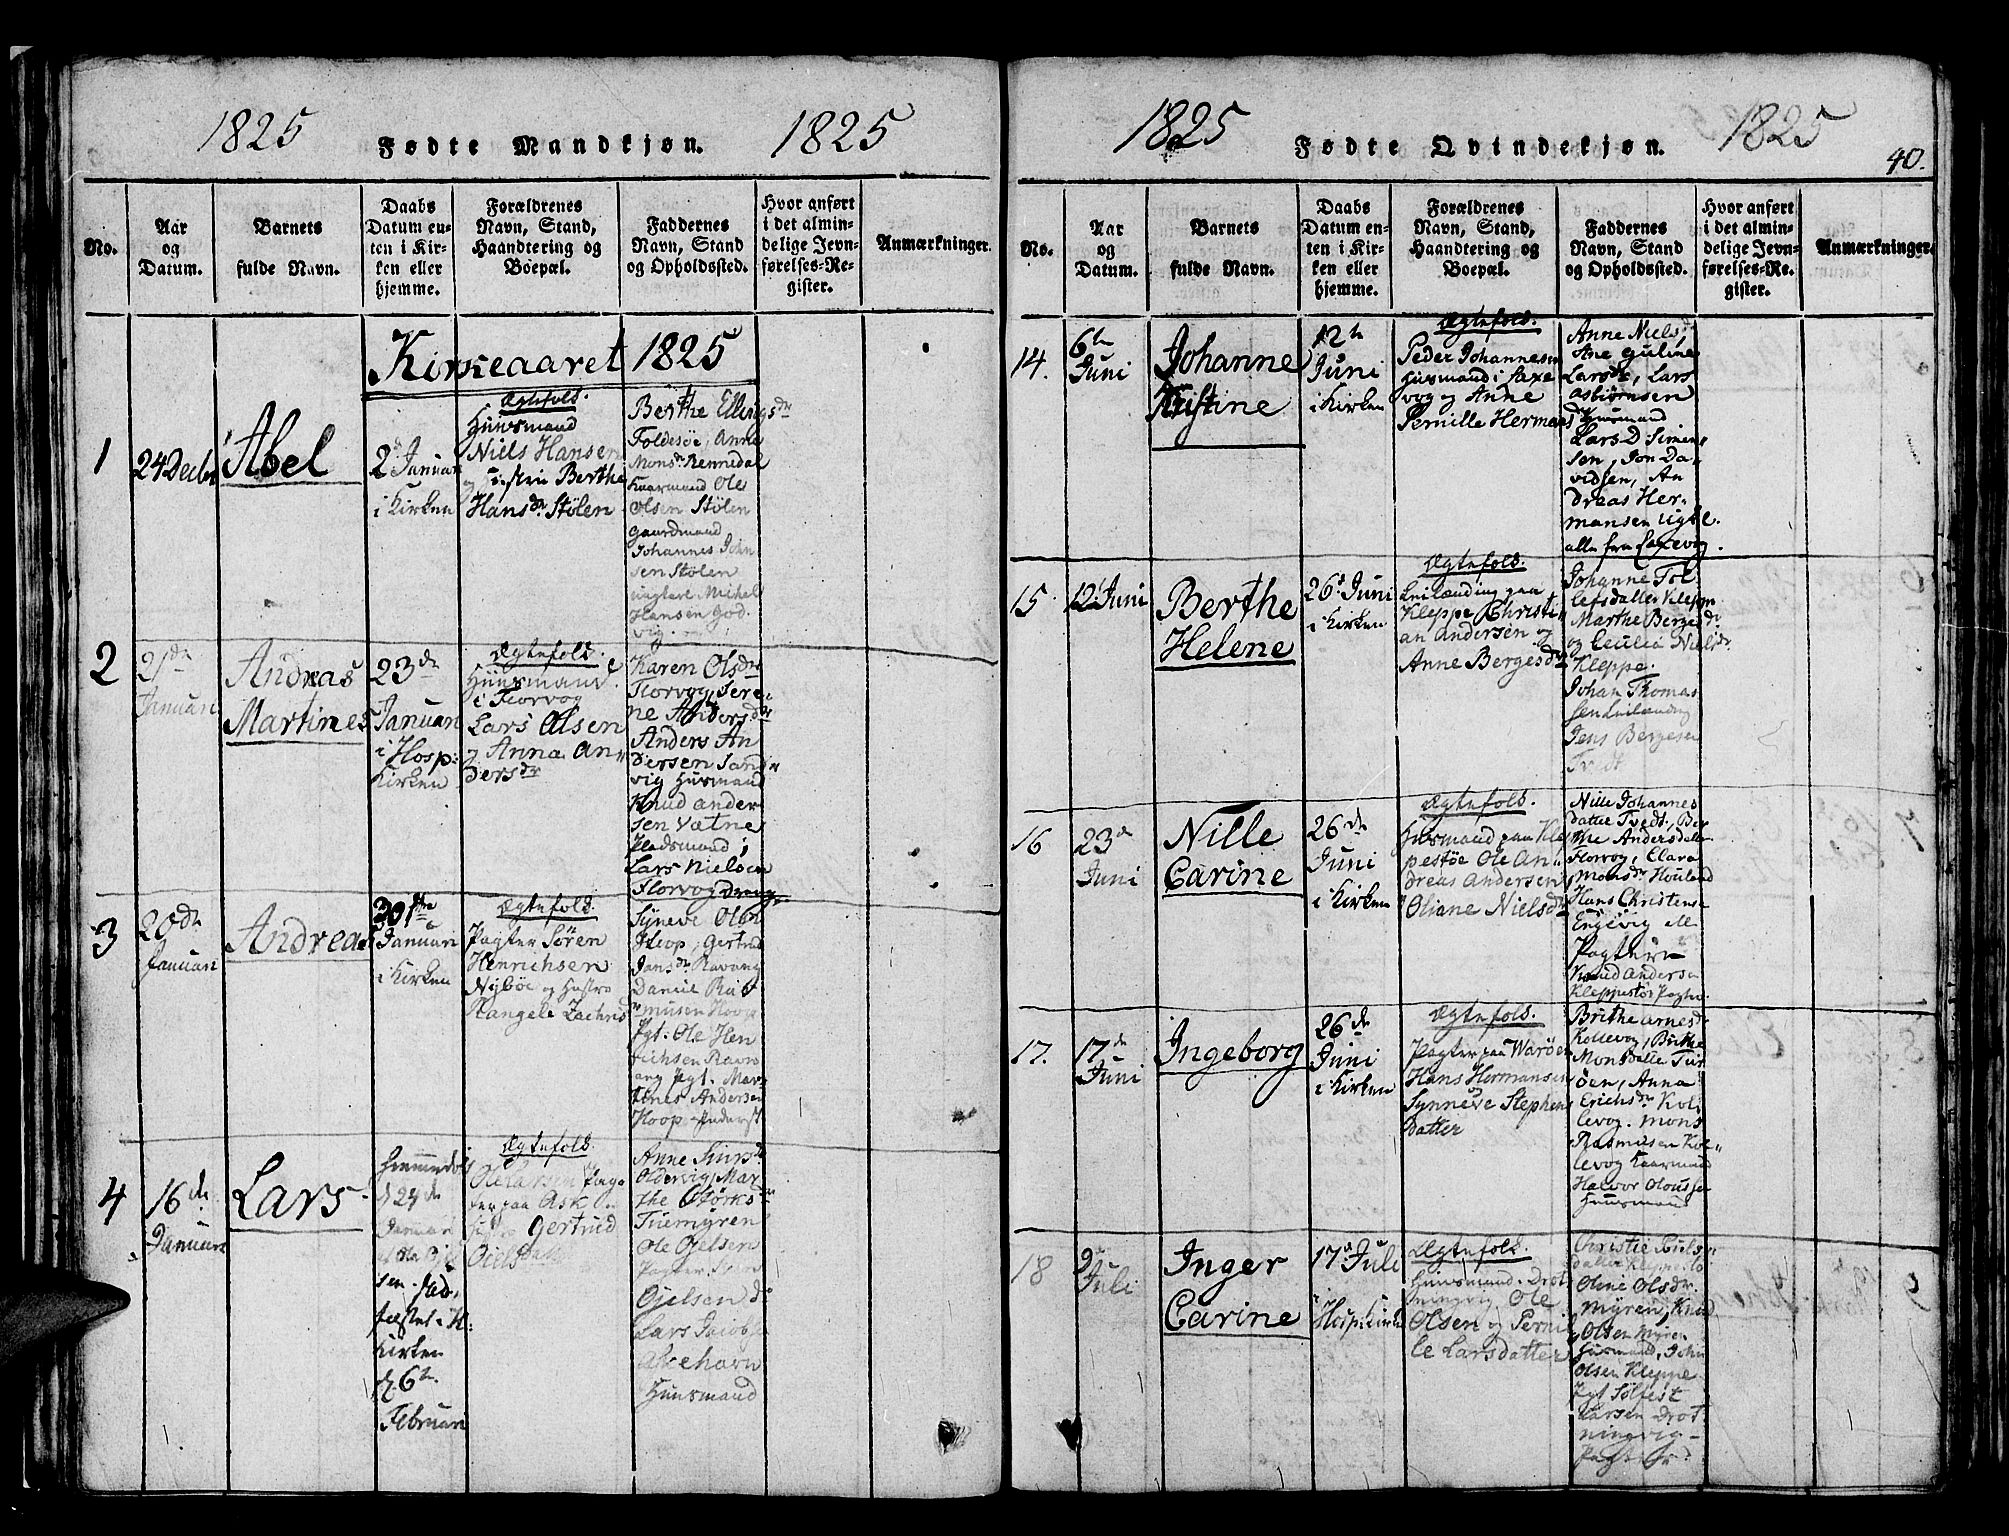 1825
Fødte Mandkjøn.
1825
No.
Aar
og
Datum.
Barnets
fulde Navn.
Daabs
Datum en-
ten i Kir-
ken eller
hjemme.
Forældrenes
Navn, Stand,
Haandtering og
Boepæl.
Faddernes
Navn, Stand
og Opholdssted.
Hvor anført
i det almin-
delige Jevn-
førelses-Re-
gister.
Anmærkninger.
Kirkeaaret 1825
1
24 Decbr
Abel
2 Januari
i Kirken
Ægtefolk.
Huusmand
Niels Hansen
og Hustrue Berthe
Hansdr Stølen
Berthe Ellingsdr
Foldesøe, Anne
Monsdr Rennedal
Kaarmand Ole
Olsen Stølen
gaardmand
Johannes John
sen Stølen
ungkarl Michel
Hansen God
vig.
2
21de
Januari
Andreas
Martines
23de
Januari
i Hosp:
Kirken
Ægtefolk.
Huusmand
i Florvog
Lars Olsen
og Anna An
dersdr
Karen Olsdr
Florvog, Sere
ne Andersdr
Anders An
dersen Sand
vig Huusmand
Knud Ander
sen Vatne
Pladsmand
Lars Nielsen
Florvog dreng
3
20de
Januari
Andreas
30te
Januari
i Kirken
Ægtefolk.
Pagter Søren
Henrichsen
Nybøe og Hustro
Rangele Zachris
Syneve Olsdr
Hoop, Gertrud
Jansdr Ravang
Daniel Ras
musen Hoop
Pgt. Ole Hen
richsen Ravn
ang Pgt. Mar
tines Andersen
Hoop
4
16de
Januari
Lars
Hjemmedøbt
d 24de
Januari
sen. Stad,
fæstet i H.
Kirken
d. 6te
Februari
Ægtefolk.
Ole Larsen Pag
ter paa Ask
Hustro Gertrud
Oielsdatter
Anne
Oldervig, Mar
the Størks
Tuemyren
Ole Ojelsen
Pagter
Ojelsen do
Lars Jacobsen
Akehavn
Huusmand
1825
Fødte Qvindekjøn.
1825
40.
No.
Aar
og
Datum.
Barnets
fulde Navn.
Daabs
Datum en-
ten i Kir-
ken eller
hjemme.
Forældrenes
Navn, Stand,
Haandtering og
Boepæl.
Faddernes
Navn, Stand
og Opholdssted.
Hvor anført
i det almin-
delige Jevn-
førelses-Re-
gister.
Anmærkninger.
14.
6te
Juni
Johanne
Kristine
12te
Juni
i Kirken
Ægtefolk.
Peder Johannesen
Huusmand i Saxe
vog og Anne
Pernille Hermans
Anne Nielsdr
Ane Guline
Larsdr, Lars
Asbiørnsen
Huusmand
Lars D Simen
sen, Jon Da
vidsen, An
dreas Her
mansen
alle fra Saxevig.
15.
12 Juni
Berthe
Helene
26de Juni
i Kirken
Ægtefolk.
Leilænding paa
Kleppe Christi
an Andersen og
Anne Bergesdr
Johanne Tol
lefsdatter Kleppe
Marthe Bergesdr
og Cecilia Nielsdr
Kleppe.
Johan Thomas
sen Leilænding
Jens Bergesen
Tvedt
16
23de
Juni
Nille
Carine
26de
Juni
i Kirken
Ægtefolk.
Huusmand paa Kle
pestøe Ole An
dreas Andersen
Oliane Nielsdr
Nille Johannes
datter Tvedt, Ber
the Andersdatter
Florvog, Clara
Monsdr Houland
Hans Christense
Engevig
Pagter
Knud Anderse
Kleppestøe Pagter
17.
17de
Juni
Ingeborg
26de
Juni
i Kirken
Ægtefolk.
Pagter paa Warøen
Hans Hermansen
Synneve Stephens
datter
Brithe Arnesdr
Kollevog, Brithe
Monsdatter Tur
øen, Anna
Erichsdr Kol
levog. Mons
Rasmusen Kol
levog Kaarmand
Halvor Olousse
Huusmand
18
9de
Juli
Inger
Carine
17de Juli
i Hosp: Kirke
Ægtefolk.
Huusmand Drot
ningvig Ole
Olsen og Pernil
le Larsdatter
Christie Niels
datter Kleppestø
Oline Olsdr
Myren, Knud
Olsen Myren
Huusmand, John
Olsen Kleppe
Pgt Sølfest
Larsen Drot
ningvig